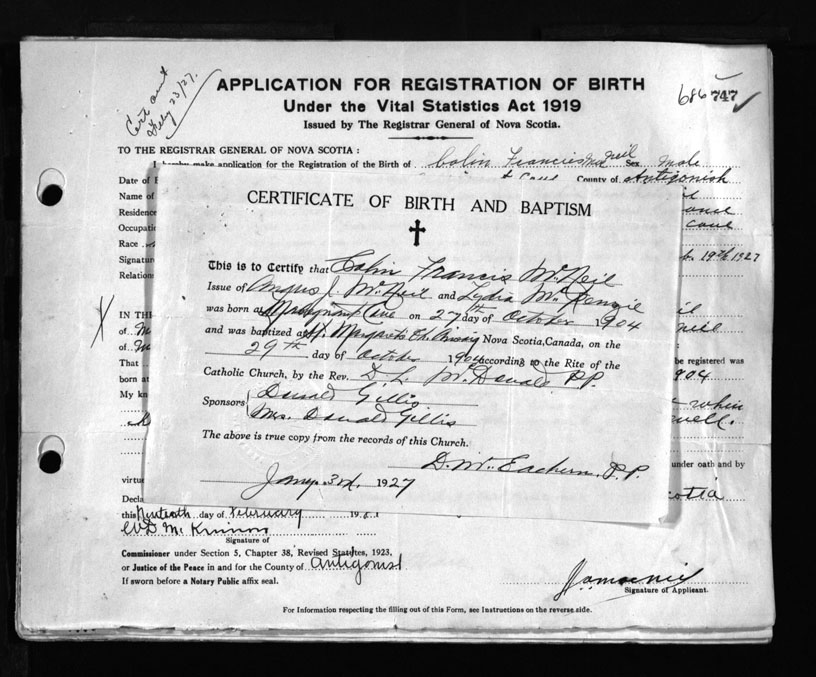 Cert sent
Feby 23/27.
APPLICATION FOR REGISTRATION OF BIRTH
Under the Vital Statistics Act 1919
Issued by The Registrar General of Nova Scotia.
686 747
TO THE REGISTRAR GENERAL OF NOVA SCOTIA :
I hereby make application for the Registration of the Birth of Colin Francis McNeil Sex Male
Date of B Cove County of Antigonish
Name of
Residence
Occupati Cove
Race 19th 1927
Signatur
Relation
CERTIFICATE OF BIRTH AND BAPTISM
This is to Certify that Colin Francis McNeil
Issue of Angus J. McNeil and Lydia McKenzie
was born at Cove on 27th day of October 1904
and was baptized at St. Margarets Ch. Arisaig Nova Scotia, Canada, on the
29th day of October 1904 according to the Rite of the
Catholic Church, by the Rev. D. L. McDonald P.P.
Sponsors Donald Gillis
Mrs. Donald Gillis
The above is true copy from the records of this Church.
D. McEachern, P.P.
Jany. 3rd, 1927
IN THE
of M
of M
That be registered was
born at 904
My kn
under oath and by
virtu
Decla otia
this Nineteenth day of February 19
McKinnon
Signature of
Commissioner under Section 5, Chapter 38, Revised Statutes, 1923,
or Justice of the Peace in and for the County of Antigonish
If sworn before a Notary Public affix seal.
Signature of Applicant.
For Information respecting the filling out of this Form, see Instructions on the reverse side.